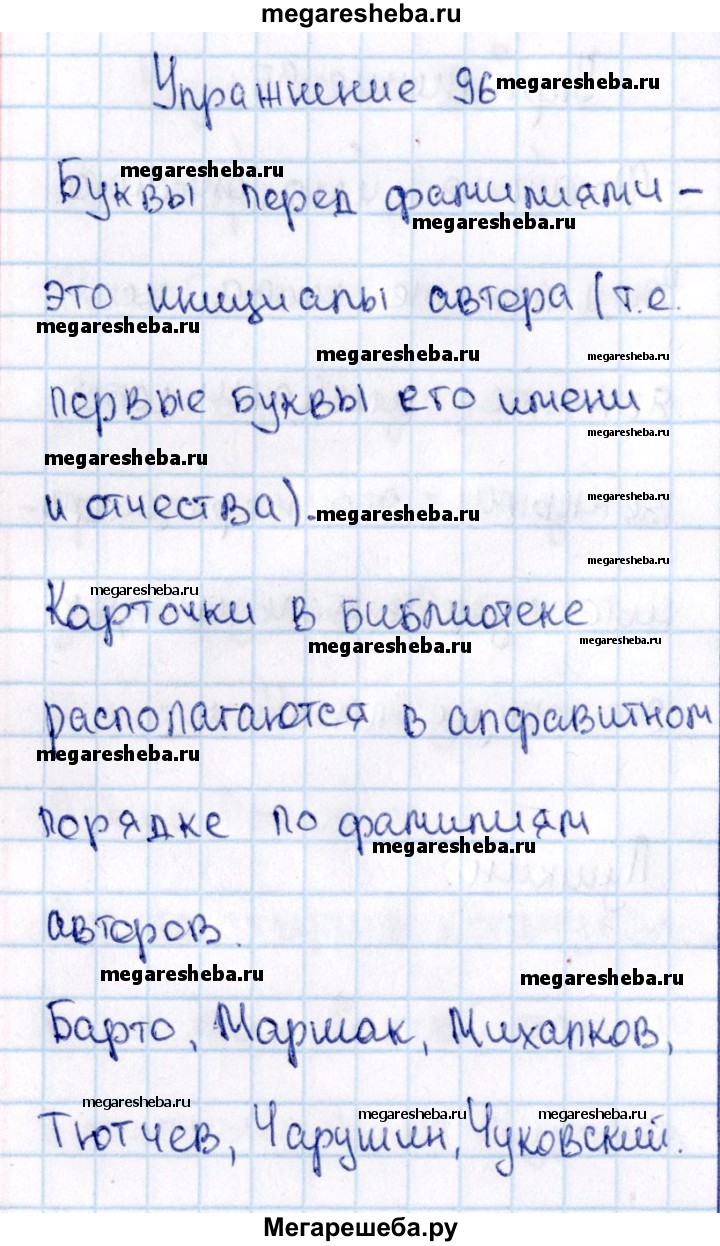 megaresheba.ru
Упражнение 96 megaresheba.ru
megaresheba.ru
Буквы перед фамилиями -
megaresheba.ru
это инициалы автора (т.е.
megaresheba.ru
megaresheba.ru megaresheba.ru
первые буквы его имени
megaresheba.ru
megaresheba.ru
и отчества). megaresheba.ru
megaresheba.ru
megaresheba.ru
megaresheba.ru
Карточки в библиотеке
megaresheba.ru megaresheba.ru
располагаются в алфавитном
megaresheba.ru
порядке по фамилиям
megaresheba.ru
авторов.
megaresheba.ru megaresheba.ru
Барто, Маршак, Михалков,
megaresheba.ru megaresheba.ru megaresheba.ru
Тютчев, Чарушин, Чуковский.
Мегарешеба.ру